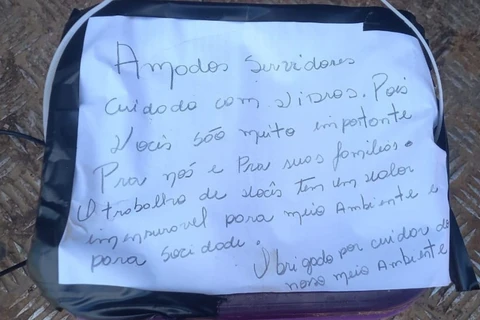 Amodos Servidores
cuidado com vidros. Pois
Vocis são muito importante
Pra nós e Pra suas famílias.
O trabalho de vocês tem um valor
imensuravel para meio Ambiente e
para socidade.
Obrigado por cuidar do
noso meio Ambiente